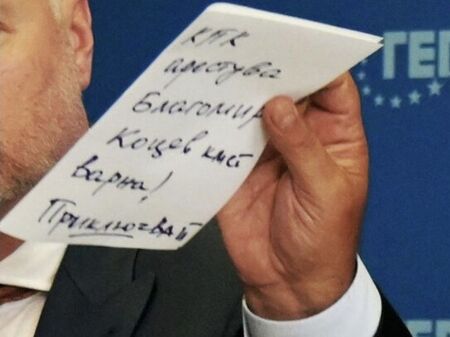 КПК
арестува
Благомир
Коцев кмет
Варна!
Приключвай
ГЕР